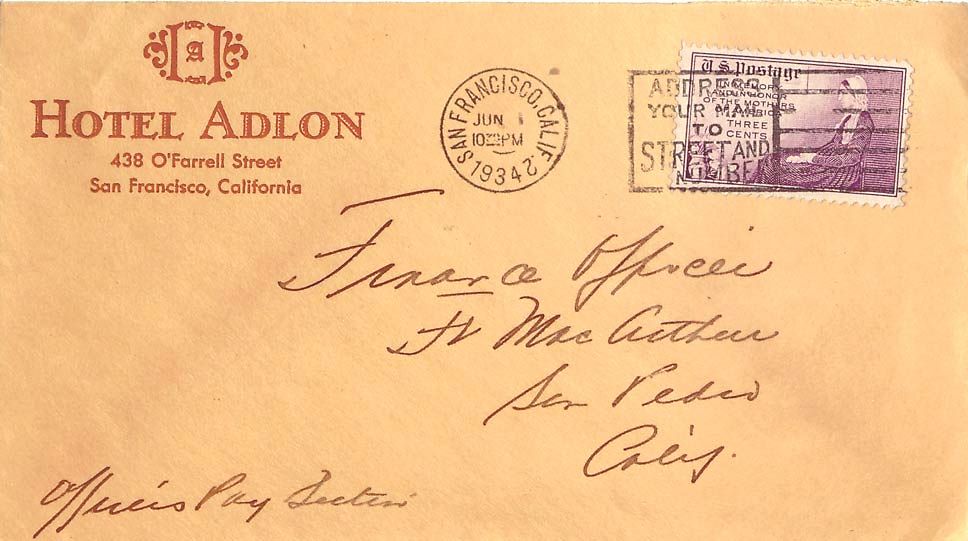 A
HOTEL ADLON
438 O'Farrell Street
San Francisco, California
SAN FRANCISCO, CALIF.
JUN 1
PM
1934
2
ADDRESS
YOUR MAIL
TO
STREET AND
NUMBER
U.S. Postage
IN MEMORY
AND IN HONOR
OF THE MOTHERS
OF AMERICA
THREE
CENTS
Finance Officer
Ft MacArthur
San Pedro
Calif.
Officers Pay Section